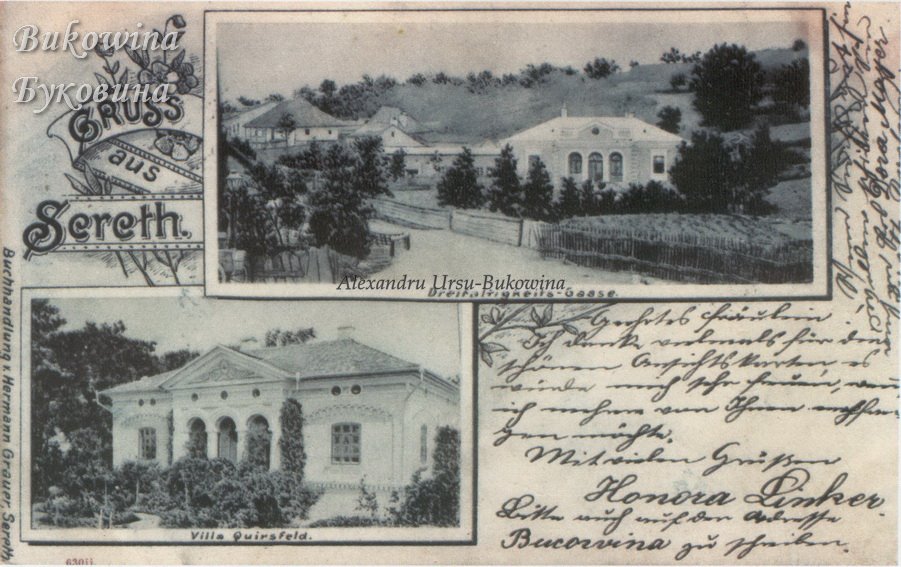 Bukowina
Буковина
GRUSS
aus
Sereth.
Alexandru Ursu-Bukowina
Dreifaltigkeits-Gasse.
Villa Quirsfeld.
Buchhandlung v. Hermann Grauer, Sereth.
63011
Geehrtes Fräulein.
Ich danke vielmals für den
schönen Ansichtskarten, es
würde mich sehr freuen, wenn
ich mehre von Ihnen
möchte.
Mit vielen Grüßen
Honora Linker.
Bitte auch auf den Adresse
Bucowina zu schreiben.